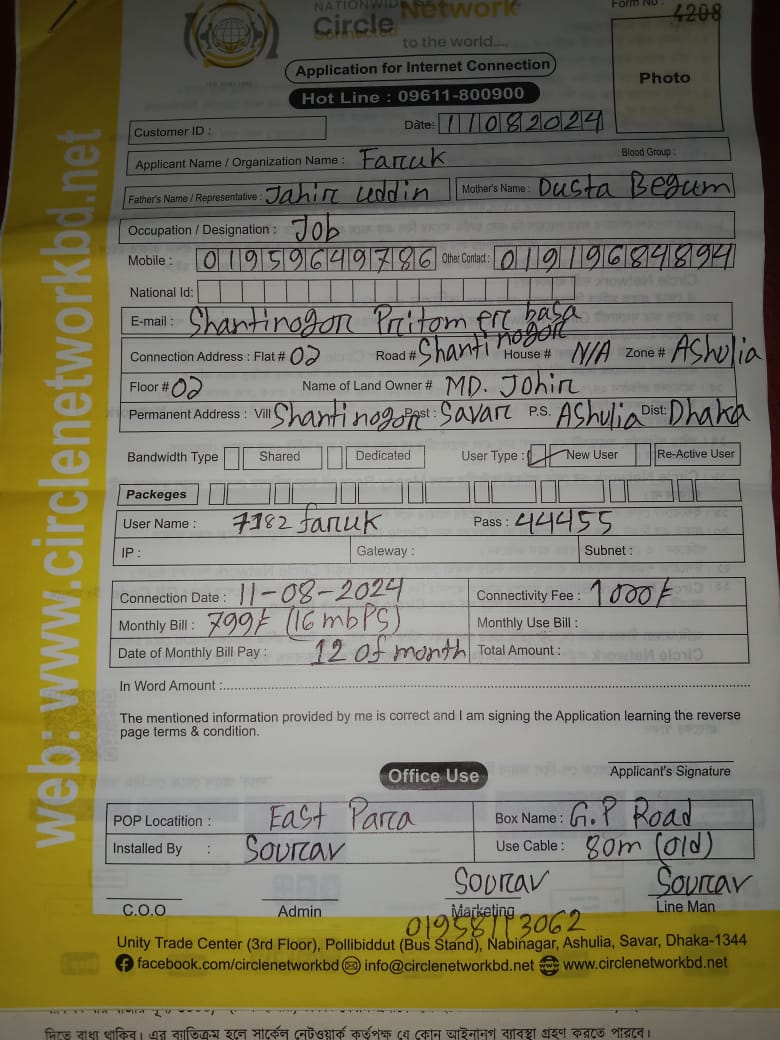 NATIONWIDE
Circle Network
Connected
to the world....
Form No : 4208
Application for Internet Connection
Photo
Hot Line : 09611-800900
Customer ID :
Date: 11082024
Applicant Name / Organization Name : Faruk
Blood Group :
Father's Name / Representative : Jahir uddin
Mother's Name : Dusta Begum
Occupation / Designation : Job
Mobile : 01959649786
Other Contact : 01919684894
National Id:
E-mail : Shantinogor Pritom er basa
Connection Address : Flat # 02 Road # Shantinogor House # N/A Zone # Ashulia
Floor # 02 Name of Land Owner # MD. Johir
Permanent Address : Vill Shantinogor Post : Savar P.S. Ashulia Dist: Dhaka
Bandwidth Type Shared Dedicated User Type : New User Re-Active User
Packeges
User Name : 7182 faruk Pass : 44455
IP : Gateway : Subnet :
Connection Date : 11-08-2024 Connectivity Fee : 1000/
Monthly Bill : 799/ (16 mbPS) Monthly Use Bill :
Date of Monthly Bill Pay : 12 Of month Total Amount :
In Word Amount :
The mentioned information provided by me is correct and I am signing the Application learning the reverse
page terms & condition.
Applicant's Signature
Office Use
POP Locatition : East Para Box Name : G.P Road
Installed By : Sourav Use Cable : 80m (old)
Sourav Sourav
C.O.O Admin Marketing Line Man
01958113062
Unity Trade Center (3rd Floor), Pollibiddut (Bus Stand), Nabinagar, Ashulia, Savar, Dhaka-1344
facebook.com/circlenetworkbd info@circlenetworkbd.net www.circlenetworkbd.net
web: www.circlenetworkbd.net
দিতে বাধ্য থাকিব। এর ব্যতিক্রম হলে সার্কেল নেটওয়ার্ক কর্তৃপক্ষ যে কোন আইনানগ ব্যবস্থা গ্রহণ করতে পারবে।